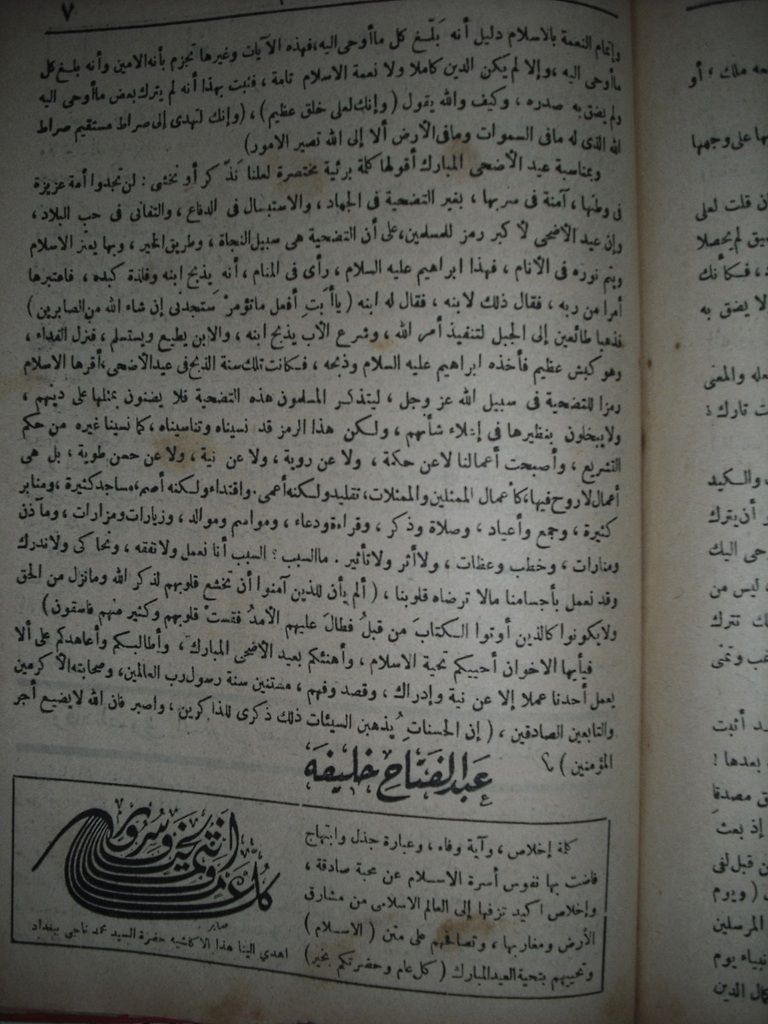 ٧
وإتمام النعمة بالاسلام دليل أنه بَلّغ كل ماأوحى اليه،فهذه الآيات وغيرها تجزم بأنه الامين وأنه بلغ كل
ماأوحى اليه ،وإلا لم يكن الدين كاملا ولا نعمة الاسلام تامة ، فثبت بهذا أنه لم يترك بعض ماأوحى اليه
ولم يضق به صدره ، وكيف والله يقول ( وإنك لعلى خلق عظيم ) ، (وإنك لتهدى إلى صراط مستقيم صراط
الله الذى له مافى السموات ومافى الأرض ألا إلى الله تصير الامور)
وبمناسبة عيد الأضحى المبارك أقولها كلمة برئية مختصرة لعلنا نذّكر أو نخشى : لن تجدوا أمة عزيزة
فى وطنها ، آمنة فى سربها ، بغير التضحية فى الجهاد ، والاستبسال فى الدفاع ، والتفانى فى حب البلاد ،
وإن عيد الأضحى لأكبر رمز للمسلمين،على أن التضحية هى سبيل النجاة ، وطريق الخير ، وبها يعز الاسلام
ويتم نوره فى الأنام ، فهذا ابراهيم عليه السلام ، رأى فى المنام ، أنه يذبح ابنه وفلذة كبده ، فاعتبرها
أمرا من ربه ، فقال ذلك لابنه ، فقال له ابنه ( ياأبت أفعل ماتؤمرْ ستجدنى إن شاء الله من الصابرين )
فذهبا طائعين إلى الجبل لتنفيذ أمر الله ، وشرع الأب يذبح ابنه ، والابن يطيع ويستسلم ، فنزل الفداء ،
وهو كبش عظيم فأخذه ابراهيم عليه السلام وذبحه ، فكانت تلك سنة الذبح فى عيد الأضحى،أقرها الاسلام
رمزا للتضحية فى سبيل الله عز وجل ، ليتذكر المسلمون هذه التضحية فلا يضنون بمثلها على دينهم ،
ولا يبخلون بنظيرها فى إعلاء شأنهم ، ولكن هذا الرمز قد نسيناه وتناسيناه ، كما نسينا غيره من حكم
التشريع ، وأصبحت أعمالنا لاعن حكمة ، ولا عن روية ، ولا عن نية ، ولا عن حسن طوية ، بل هى
أعمال لاروح فيها،كأعمال الممثلين والممثلات، تقليد ولكنه أعمى، واقتداء ولكنه أصم،مساجد كثيرة ،ومنابر
كثيرة ، وجمع وأعياد ، وصلاة وذكر ، وقراءة ودعاء ، ومواسم وموالد ، وزيارات ومزارات ، ومآذن
ومنارات ، وخطب وعظات ، ولاأثر ولاتأثير . ماالسبب ؟ السبب أنا نعمل ولانفقه ، ونحاكى ولاندرك
وقد نعمل بأجسامنا مالا ترضاه قلوبنا ، ( ألم يأن للذين آمنوا أن تخشع قلوبهم لذكر الله ومانزل من الحق
ولايكونوا كالذين أوتوا الكتابَ من قبلُ فطالَ عليهم الأمدُ فقستْ قلوبهم وكثير منهم فاسقون )
فيأيها الاخوان أحييكم تحية الاسلام ، وأهنئكم بعيد الأضحى المبارك ، وأطالبكم وأعاهدكم على ألا
يعمل أحدنا عملا إلا عن نية وإدراك ، وقصد وفهم ، مستنين سنة رسول رب العالمين، وصحابته الأكرمين
والتابعين الصادقين ، ( إن الحسنات يُذهبن السيئات ذلك ذكرى للذاكرين ، واصبر فان الله لايضيع أجر
المؤمنين )
عبد الفتاح خليفه
كلمة إخلاص ، وآية وفاء ، وعبارة جذل وابتهاج
فاضت بها نفوس أسرة الاسلام عن محبة صادقة ،
وإخلاص اكيد تزفها إلى العالم الاسلامى من مشارق
الأرض ومغاربها ، وتصافحهم على متن ( الاسلام )
وتحييهم بتحية العيد المبارك ( كل عام وحضرتكم بخير )
كل عام وأنتم بخير وسرور
صابر
اهدى الينا هذا الاكلشيه حضرة السيد محمد ناجى ببغداد
معه ملك ، أو
بها على وجهها
ان قلت لعلى
ضيق لم يحصلا
د، فكأنك
لا يضق به
عله والمعنى
ت تارك ؛
والكيد
أن يترك
حى اليك
، ليس من
ك تترك
وتمنى
د أثبت
بعدها !
مصدقا
إذ بعث
ن قبل لفى
( ويوم
المرسلين
نبياء يوم
كمال الدين